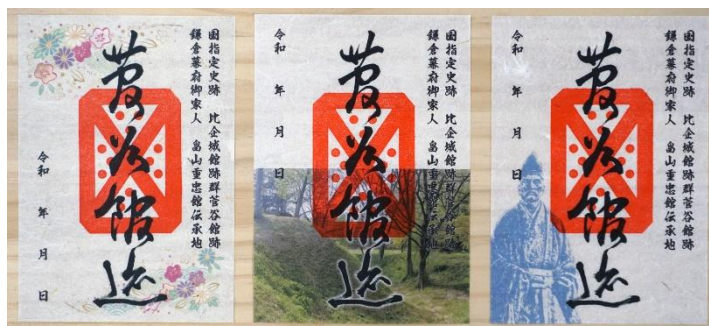 国指定史跡 比企城館跡群菅谷館跡
鎌倉幕府御家人 畠山重忠館伝承地
菅谷館迹
令和 年 月 日
国指定史跡 比企城館跡群菅谷館跡
鎌倉幕府御家人 畠山重忠館伝承地
菅谷館迹
令和 年 月 日
国指定史跡 比企城館跡群菅谷館跡
鎌倉幕府御家人 畠山重忠館伝承地
菅谷館迹
令和 年 月 日